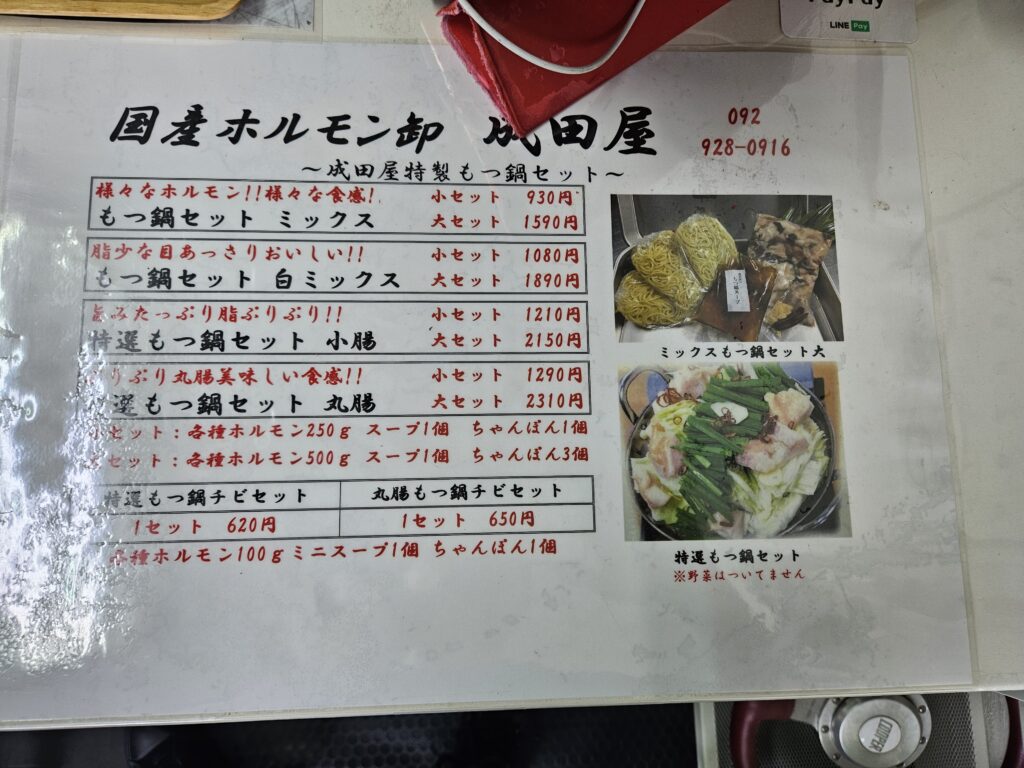 LINE Pay
国産ホルモン卸 成田屋
092
928-0916
～成田屋特製もつ鍋セット～
様々なホルモン!!様々な食感! 小セット 930円
もつ鍋セット ミックス 大セット 1590円
脂少な目あっさりおいしい!! 小セット 1080円
もつ鍋セット 白ミックス 大セット 1890円
旨みたっぷり脂ぷりぷり!! 小セット 1210円
特選もつ鍋セット 小腸 大セット 2150円
りぷり丸腸美味しい食感!! 小セット 1290円
選もつ鍋セット 丸腸 大セット 2310円
小セット：各種ホルモン250g スープ1個 ちゃんぽん1個
セット：各種ホルモン500g スープ1個 ちゃんぽん3個
特選もつ鍋チビセット 丸腸もつ鍋チビセット
1セット 620円 1セット 650円
各種ホルモン100gミニスープ1個 ちゃんぽん1個
ミックスもつ鍋セット大
特選もつ鍋セット
※野菜はついてません